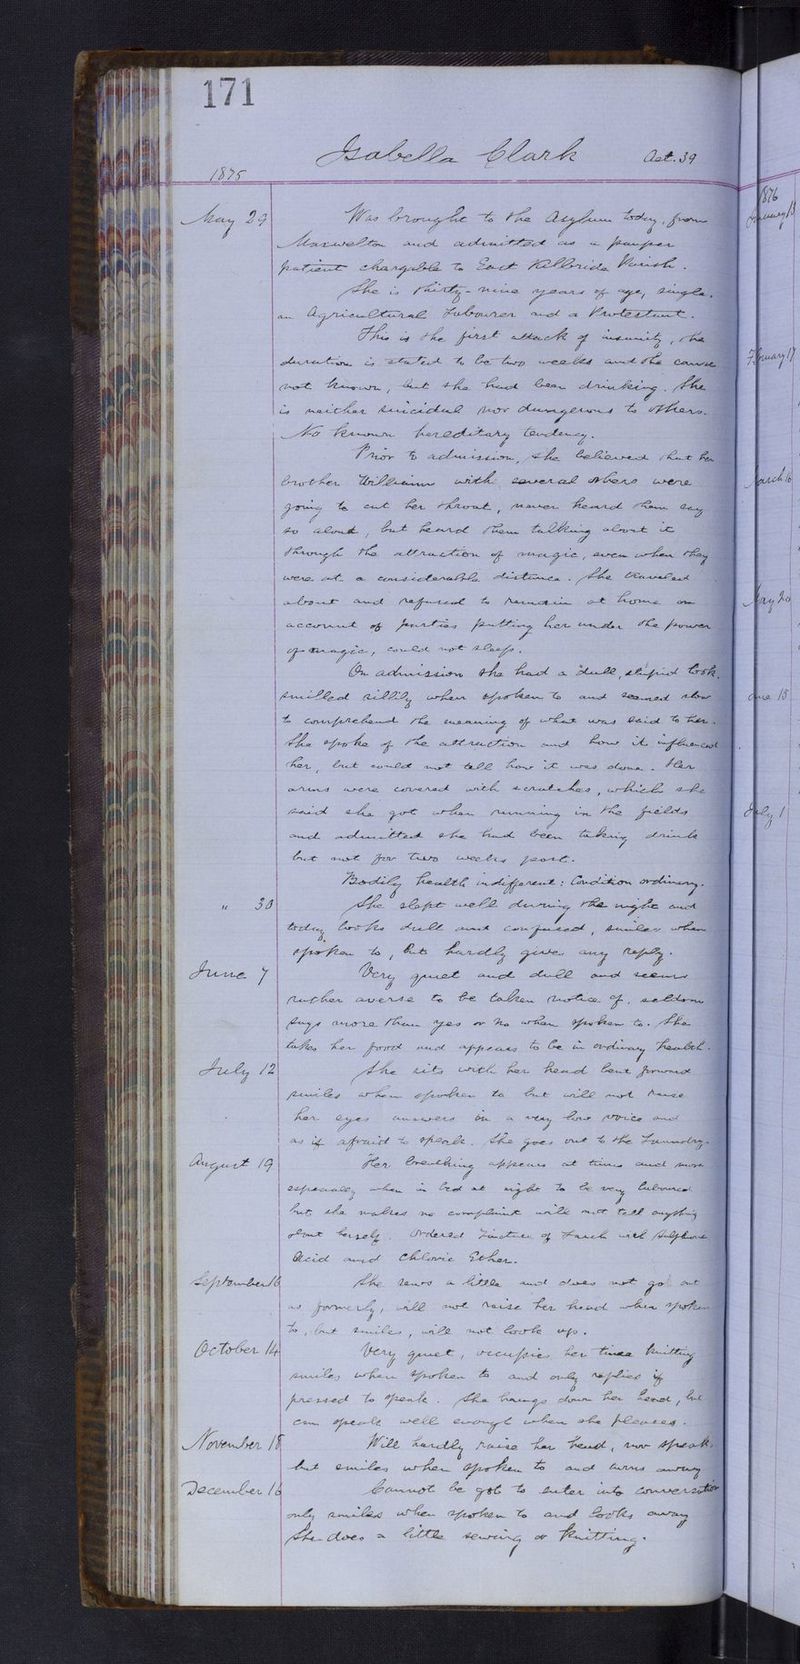 171
Isabella Clark Aet. 39
1875
May 29 Was brought to the Asylum today, from
Maxwelton and admitted as a pauper
patient chargable to East Kilbride Parish.
She is thirty-nine years of age, single,
an Agricultural Labourer and a Protestant.
This is the first attack of insanity, the
duration is stated to be two weeks and the cause
not known, but she had been drinking. She
is neither suicidal nor dangerous to others.
No known hereditary tendency.
Prior to admission, she believed that her
brother William with several others were
going to cut her throat, never heard them say
so aloud, but heard them talking about it
through the attraction of magic, even when they
were at a considerable distance. She traveled
about and refused to remain at home on
account of parties putting her under the power
of magic, could not sleep.
On admission she had a dull, stupid look,
smilled sillily when spoken to and seemed slow
to comprehend the meaning of what was said to her.
She spoke of the attraction and how it influenced
her, but could not tell how it was done. Her
arms were covered with scratches, which she
said she got when running in the fields
and admitted she had been taking drink
but not for two weeks past.
Bodily health indifferent: Condition ordinary.
" 30 She slept well during the night and
today looks dull and confused, smiles when
spoken to, but hardly gives any reply.
June 7 Very quiet and dull and seems
rather averse to be taken notice of, seldom
says more than yes or no when spoken to. She
takes her food and appears to be in ordinary health.
July 12 She sits with her head bent forward
smiles when spoken to but will not raise
her eyes answers in a very low voice and
as if afraid to speak. She goes out to the Laundry.
August 19 Her breathing appears at times and more
especially when in bed at night to be very laboured
but she makes no complaint will not tell anything
about herself. Ordered Tincture of with Sulphuric
Acid and Chloric Ether.
September 16 She sews a little and does not go out
as formerly, will not raise her head when spoken
to, but smiles, will not look up.
October 14 Very quiet, occupies her time knitting
smiles when spoken to and only replies if
pressed to speak. She hangs down her head, but
can speak well enough when she pleases.
November 18 Will hardly raise her head, nor speak,
but smiles when spoken to and turns away
December 16 Cannot be got to enter into conversation
only smiles when spoken to and looks away
She does a little sewing or knitting.
1876
January 18
February 17
March 16
May 20
June 18
July 1